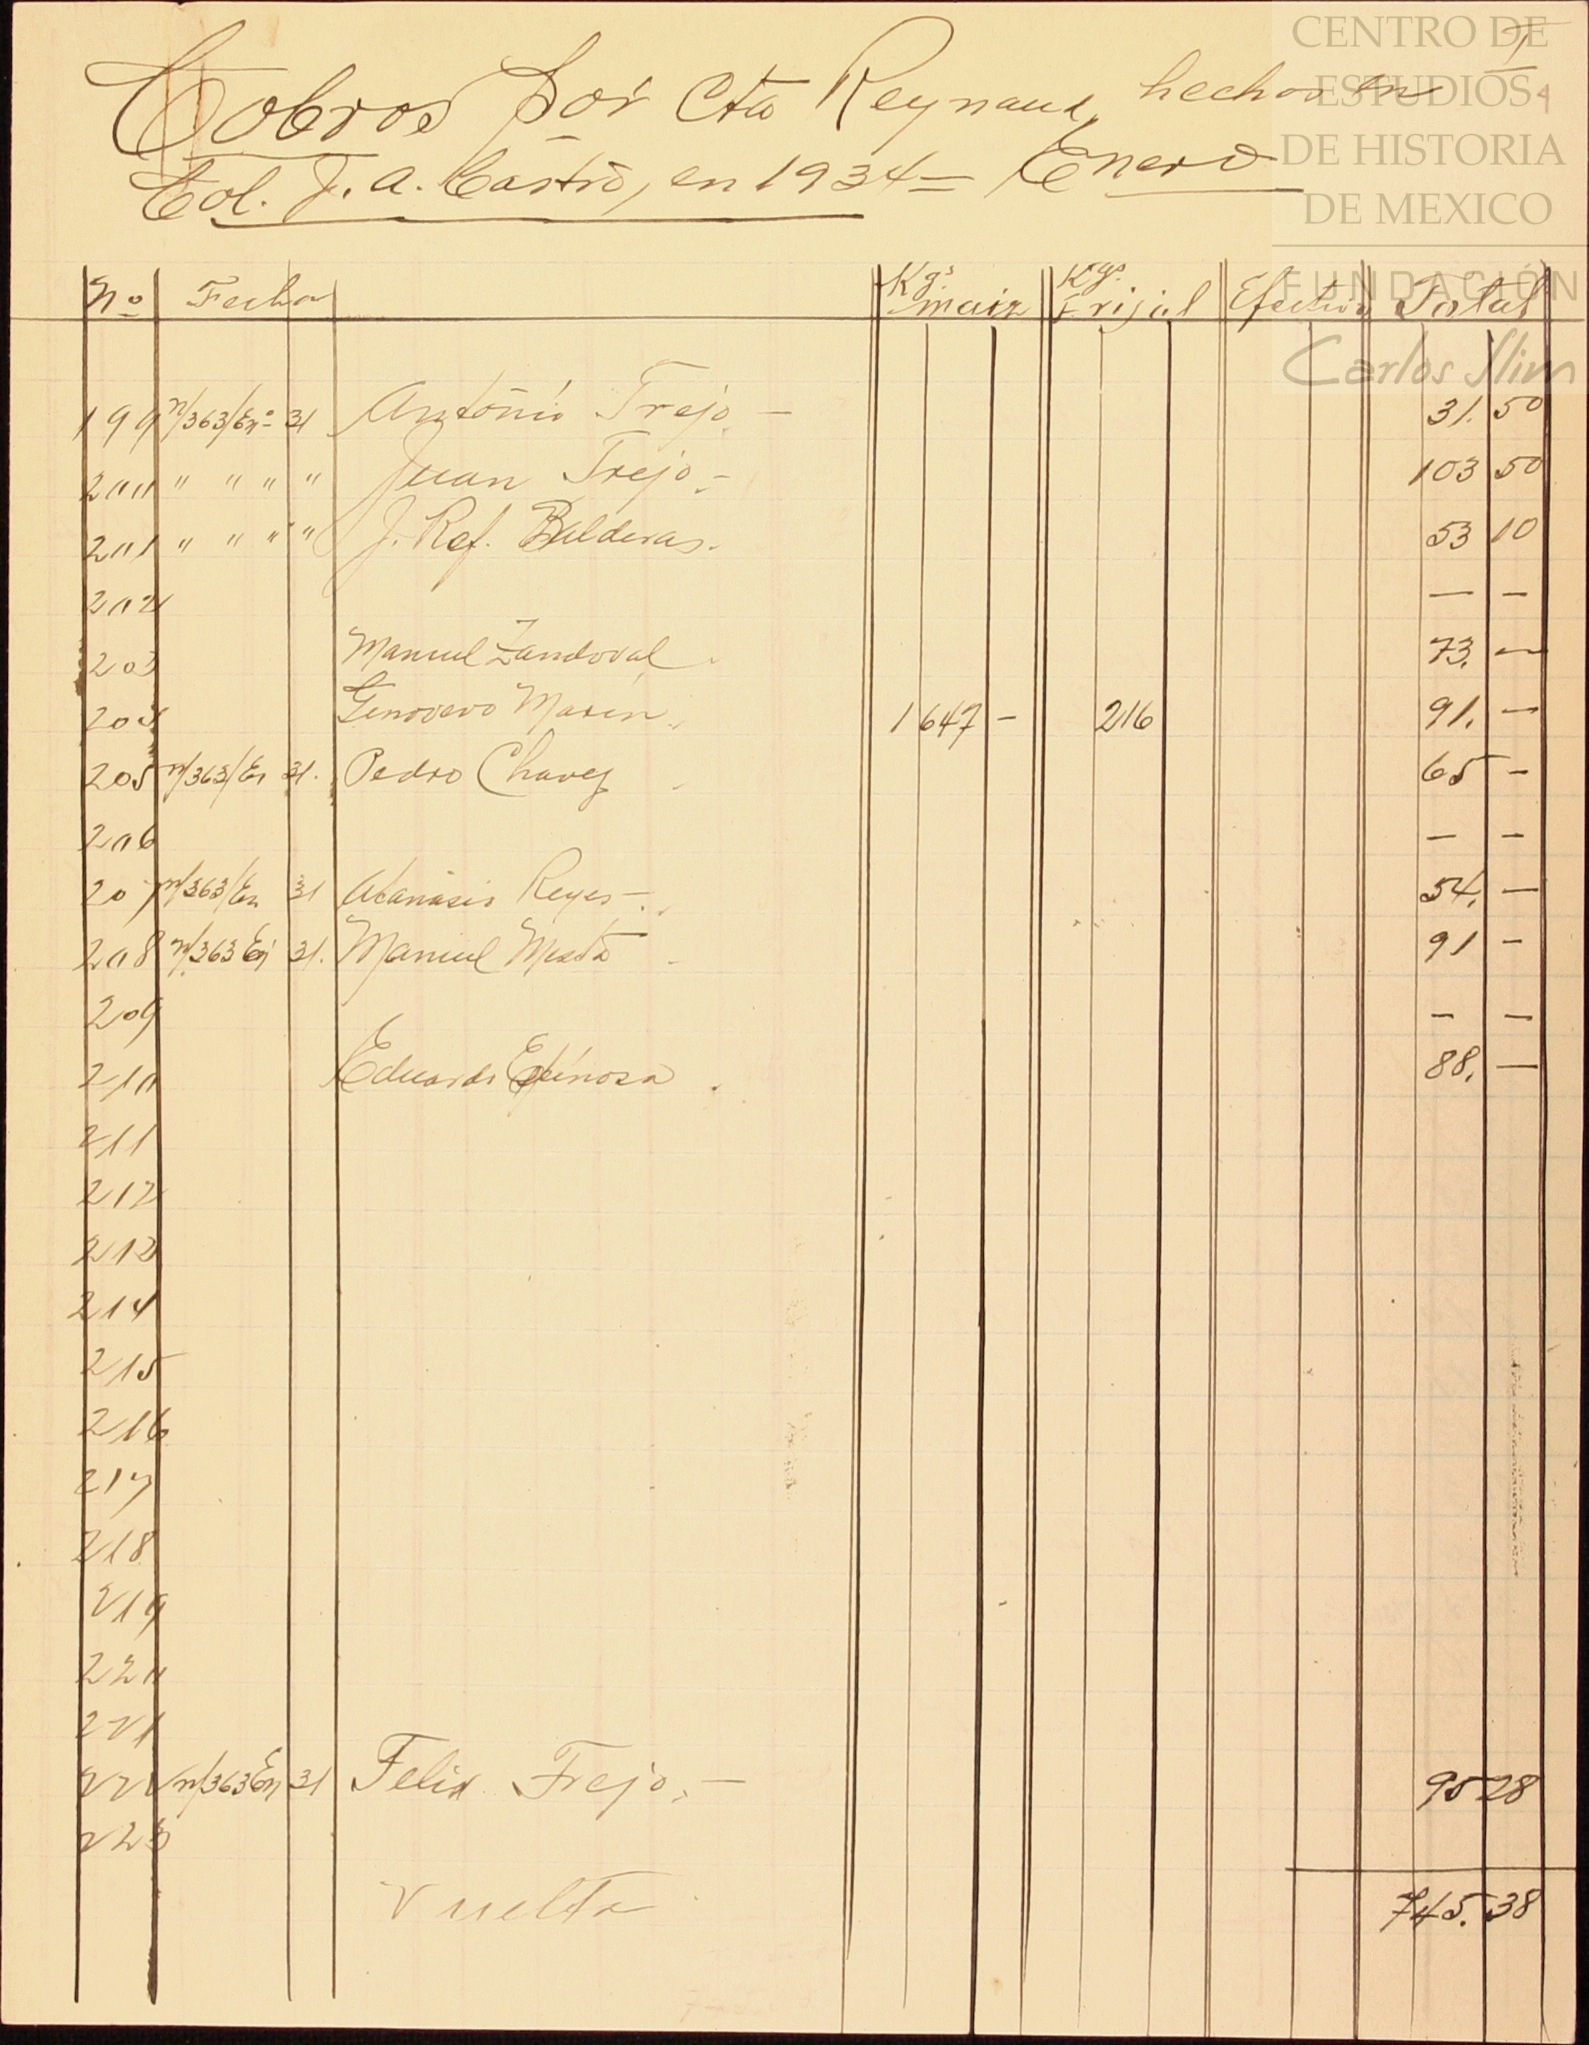 1
Cobros por Cta Reynaud, hechos en
Col. J. A. Castro, en 1934 = Enero
CENTRO DE
ESTUDIOS
DE HISTORIA
DE MEXICO
FUNDACIÓN
Carlos Slim
No Fecha Kgs. maiz Kgs. Frijol Efectivo Total
199 n/363/En° 31 Antonio Trejo — 31. 50
200 " " " " Juan Trejo.- 103 50
201 " " " " J. Ref. Balderas. 53 10
202 — —
203 Manuel Zandoval. 73. —
204 Genovevo Marin. 1 647 - 216 91. —
205 n/363/En 31. Pedro Chavez 65 -
206 — —
207 n/363/En 31 Atanasio Reyes -. 54. —
208 n/363 En 31. Manuel Mesta - 91 -
209 — —
210 Eduardo Espinosa . 88. —
211
212
213
214
215
216
217
218
219
220
221
222 n/363 En 31 Felix Trejo. — 95 28
223
Vuelta 745. 38